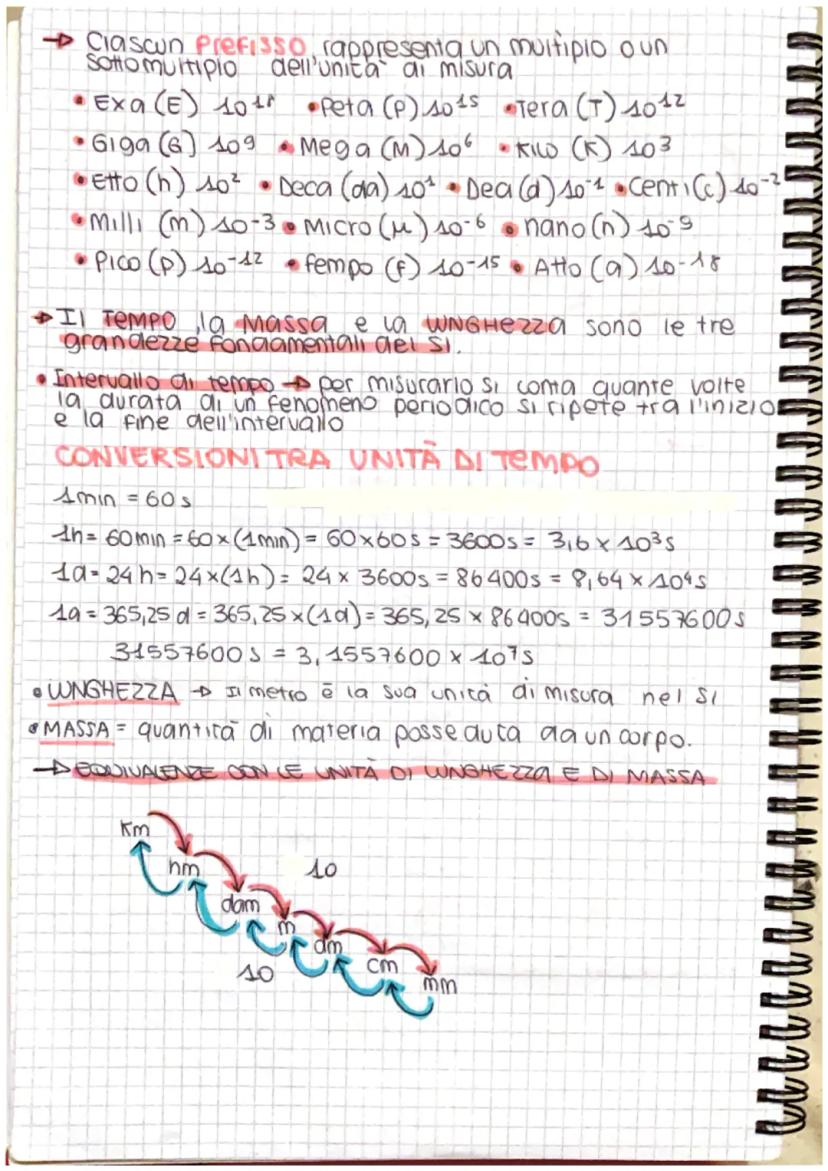 → Ciascun Prefisso rappresenta un multiplo o un
sottomultiplo dell'unità di misura
• Exa (E) 10¹⁸ • Peta (P) 10¹⁵ • Tera (T) 10¹²
• Giga (G) 10⁹ • Mega (M) 10⁶ • Kilo (K) 10³
• Etto (h) 10² • Deca (da) 10¹ • Dea (d) 10⁻¹ • Centi (c) 10⁻²
• Milli (m) 10⁻³ • Micro (μ) 10⁻⁶ • nano (n) 10⁻⁹
• Pico (p) 10⁻¹² • fempo (f) 10⁻¹⁵ • Atto (a) 10⁻¹⁸
→ Il TEMPO, la Massa e la LUNGHEZZA sono le tre
grandezze fondamentali del SI.
• Intervallo di tempo → per misurarlo si conta quante volte
la durata di un fenomeno periodico si ripete tra l'inizio
e la fine dell'intervallo
CONVERSIONI TRA UNITÀ DI TEMPO
1min = 60 s
1h = 60min = 60 × (1min) = 60 × 60 s = 3600s = 3,6 × 10³s
1d = 24 h = 24 × (1h) = 24 × 3600s = 86400s = 8,64 × 10⁴s
1a = 365,25 d = 365,25 × (1d) = 365,25 × 86400s = 31557600s
31557600 s = 3,1557600 × 10⁷s
• LUNGHEZZA → Il metro è la sua unità di misura nel SI
• MASSA = quantità di materia posseduta da un corpo.
→ EQUIVALENZE CON LE UNITÀ DI LUNGHEZZA E DI MASSA
Km
hm
10
dam
m
dm
10
cm
mm